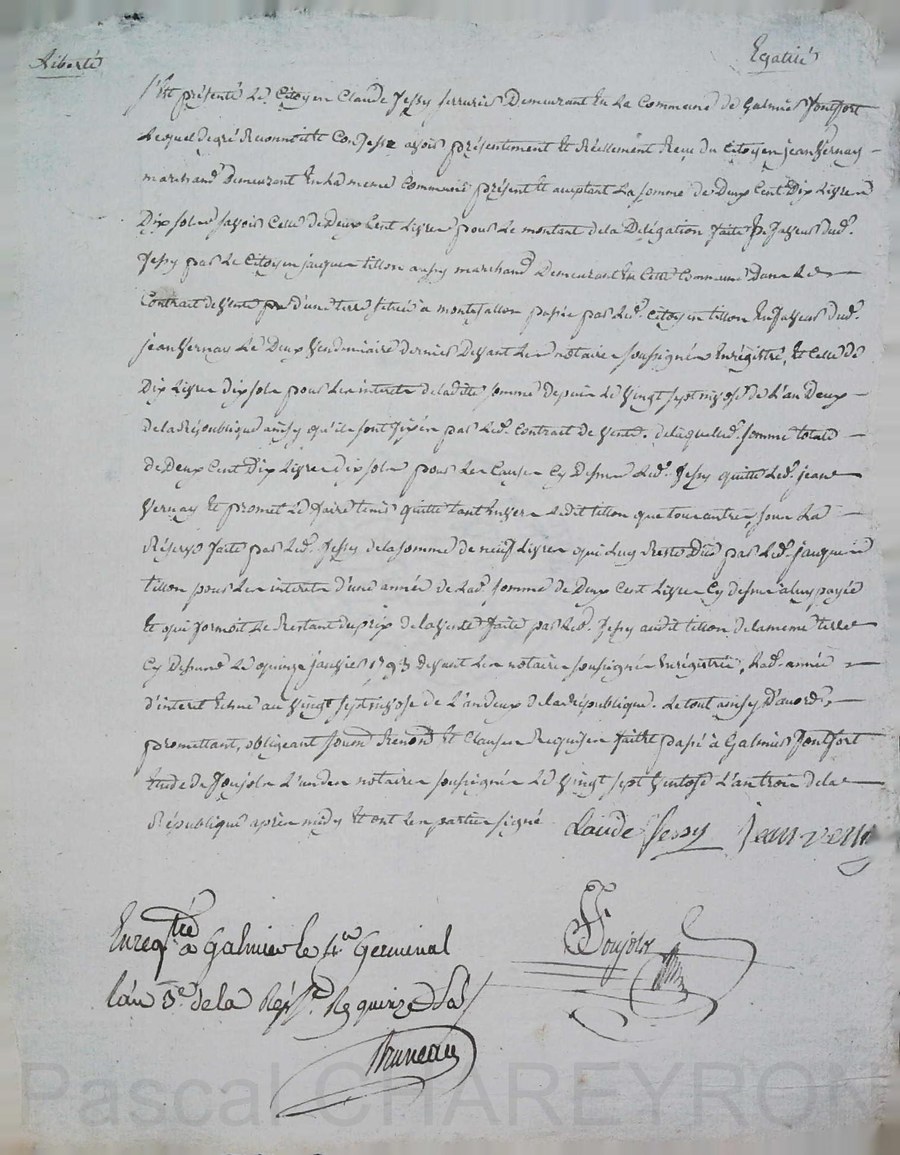 Liberté
Egalité
S'est présenté Le Citoyen Claude Jessy serrurier Demeurant En La Commune de Galmier Fontfort
Lequel de gré Reconnoit et Confesse avoir présentement Et Réellement Reçu du Citoyen jean Vernay
marchand Demeurant En La meme Commune présent Et acceptant La somme de Deux Cent Dix Livres
Dix sols savoir Celle de Deux Cent Livres pour Le montant de la Délégation faite En faveur dud.
Jessy par Le Citoyen jacques tillon aussy marchand Demeurant En Cette Commune Dans Le
Contrat de Vente d'une terre située à montsallon passée par Led. Citoyen tillon En faveur dud.
jean Vernay Le Deux Vendemiaire dernier Devant Les notaires soussignés Enregistré, Et Celle de
Dix Livres dix sols pour Les interets de ladite somme depuis Le Vingt sept nivose de L'an Deux
de la République ainsy qu'ils sont fixés par Led. Contrat de Vente. de laquelle somme totale
de Deux Cent Dix Livres dix sols pour Les Causes Cy Dessus Led. Jessy quitte Led. jean
Vernay Et promet Le faire tenir quitte tant Envers Ledit tillon que tous autres, sous La
Réserve faite par Led. Jessy de la somme de neuf Livres qui Luy Reste Due par Led. jacques
tillon pour Les interets d'une année de Lad. somme de Deux Cent Livres Cy dessus a luy payée
Et qui formoit Le Restant du prix de la Vente faite par Led. Jessy audit tillon de la meme terre
Cy Dessus Le quinze janvier 1793 devant Les notaires soussignés Enregistrée, Lad. année
d'interet Echue au Vingt sept nivose de L'an deux de la République. Le tout ainsy D'accord,
promettant, obligeant soum. Renond. Et Clauses Requises fait et passé à Galmier Fontfort
Etude de Poujols L'un des notaires soussignés Le Vingt sept Ventose L'an trois de la
République après midy Et ont Les parties signé
Claude Jessy jean vernay
Poujols
Enreg.tré à Galmier le 4e Germinal
l'an 3e de la Rép. R. quinze s.
Bruneau
Pascal CHAREYRON